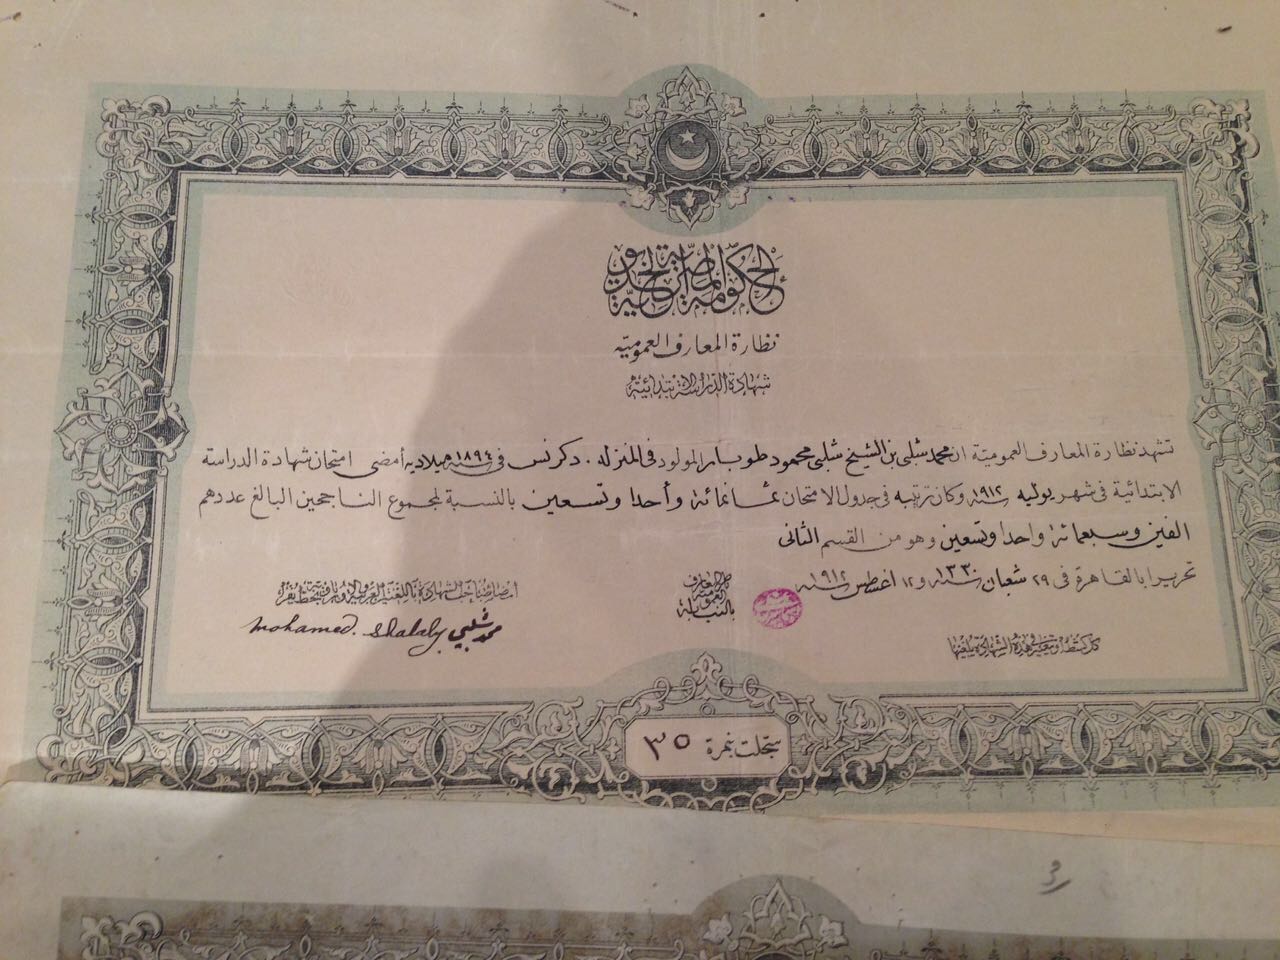 الحكومة المصرية الخديوية
نظارة المعارف العمومية
شهادة الدراسة الابتدائية
تشهد نظارة المعارف العمومية ان محمد شلبى بن الشيخ شلبى محمود طوبار المولود فى المنزله . دكرنس فى سنة ١٨٩٤ ميلاديه أمضى امتحان شهادة الدراسة
الابتدائية فى شهر يوليه سنة ١٩١٢ وكان ترتيبه فى جدول الامتحان ثمانمائة وأحدا وتسعين بالنسبة لمجموع الناجحين البالغ عددهم
الفين وسبعمائة واحدا وتسعين وهو من القسم الثانى
تحريرا بالقاهرة فى ٢٩ شعبان سنة ١٣٣٠ و ١٢ اغسطس سنة ١٩١٢
المعارف
العمومية
بالنيابة
امضا صاحب الشهادة باللغتين العربية والاورباوية بخط يقرأ
mohamed. shalaby محمد شلبي
كل كشط او تغيير فى هذه الشهادة يلغيها
سجلت نمرة ٣٥